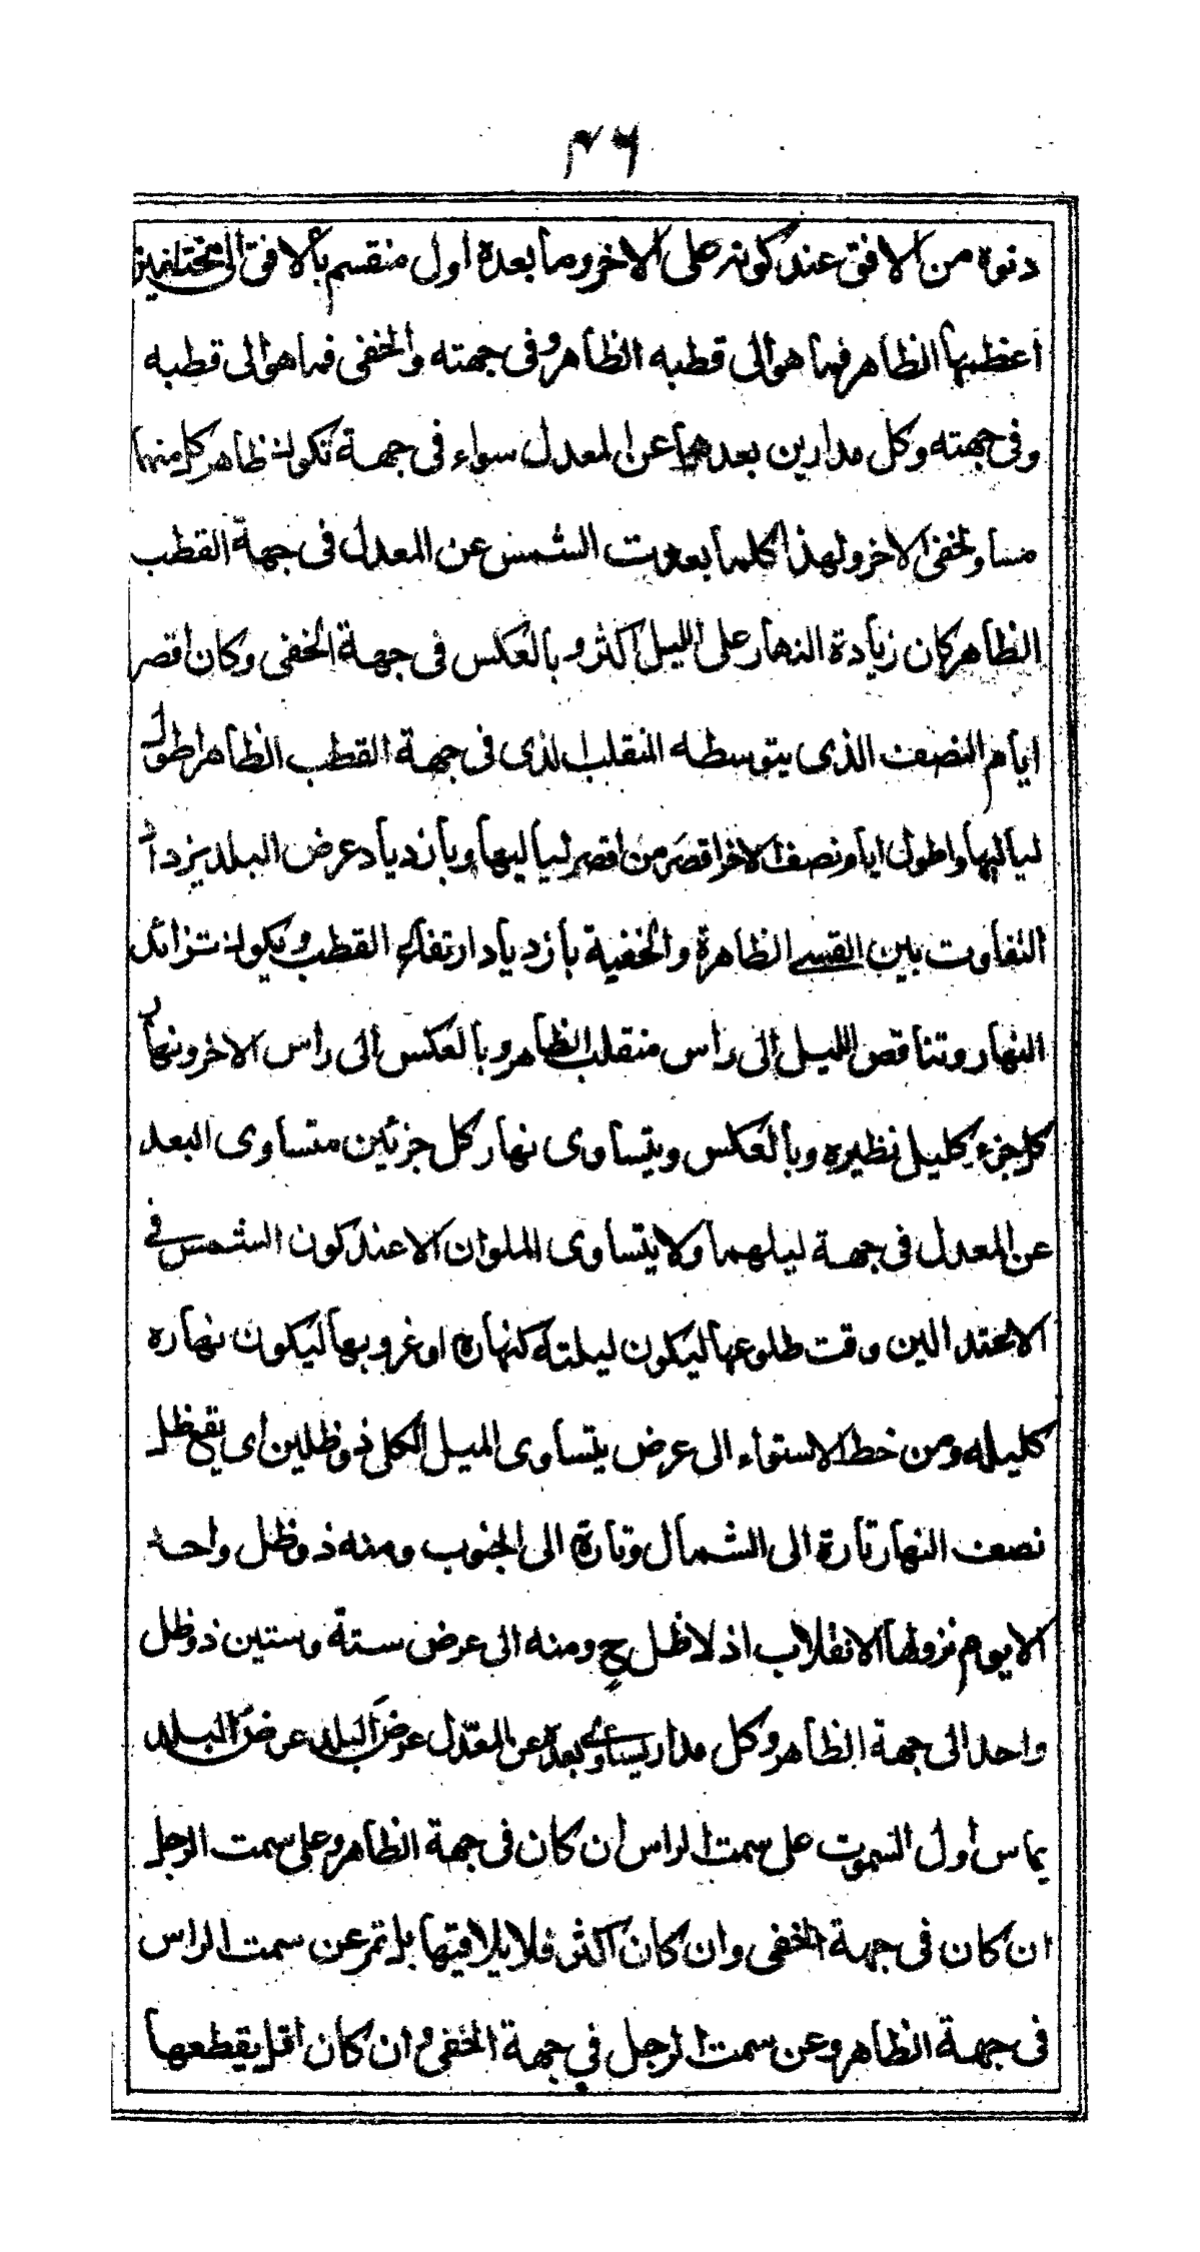 ٤٦
دنوه من الافق عند كونه على الاخر وما بعده اول منقسم بالافق الى مختلفين
اعظمها الظاهر فيما هو الى قطبه الظاهر وفى جهته والخفى فيما هو الى قطبه
وفى جهته وكل مدارين بعدهما عن المعدل سواء فى جهة تكون ظاهر كل منهما
مساو لخفى الاخر ولهذا كلما بعدت الشمس عن المعدل فى جهة القطب
الظاهر كان زيادة النهار على الليل اكثر وبالعكس فى جهة الخفى وكان اقصر
ايام النصف الذى يتوسطه المنقلب الذى فى جهة القطب الظاهر اطول
لياليها واطول ايام نصف الاخر اقصر من اقصر لياليها وبازدياد عرض البلد يزداد
التفاوت بين القسى الظاهرة والخفية بازدياد ارتفاع القطب ويكون تزائد
النهار وتناقص الليل الى راس منقلب الظاهر وبالعكس الى راس الاخر ونهار
كل جزء كليل نظيره وبالعكس ويتساوى نهار كل جزئين متساوى البعد
عن المعدل فى جهة ليلهما ولا يتساوى الملوان الا عند كون الشمس فى
الاعتدالين وقت طلوعها ليكون ليلته كنهاره او غروبها ليكون نهاره
كليله ومن خط الاستواء الى عرض يتساوى الميل الكلى ذو ظلين اى يقع ظل
نصف النهار تارة الى الشمال وتارة الى الجنوب ومنه ذو ظل واحد
الا يوم نزولها الانقلاب اذ لا ظل ح ومنه الى عرض ستة وستين ذو ظل
واحد الى جهة الظاهر وكل مدار يساوى بعده عن المعدل عرض البلد عرض البلد
يماس اول السموت على سمت الراس ان كان فى جهة الظاهر وعلى سمت الرجل
ان كان فى جهة الخفى وان كان اكثر فلا يلاقيها بل تمر عن سمت الراس
فى جهة الظاهر وعن سمت الرجل فى جهة الخفى وان كان اقل يقطعها